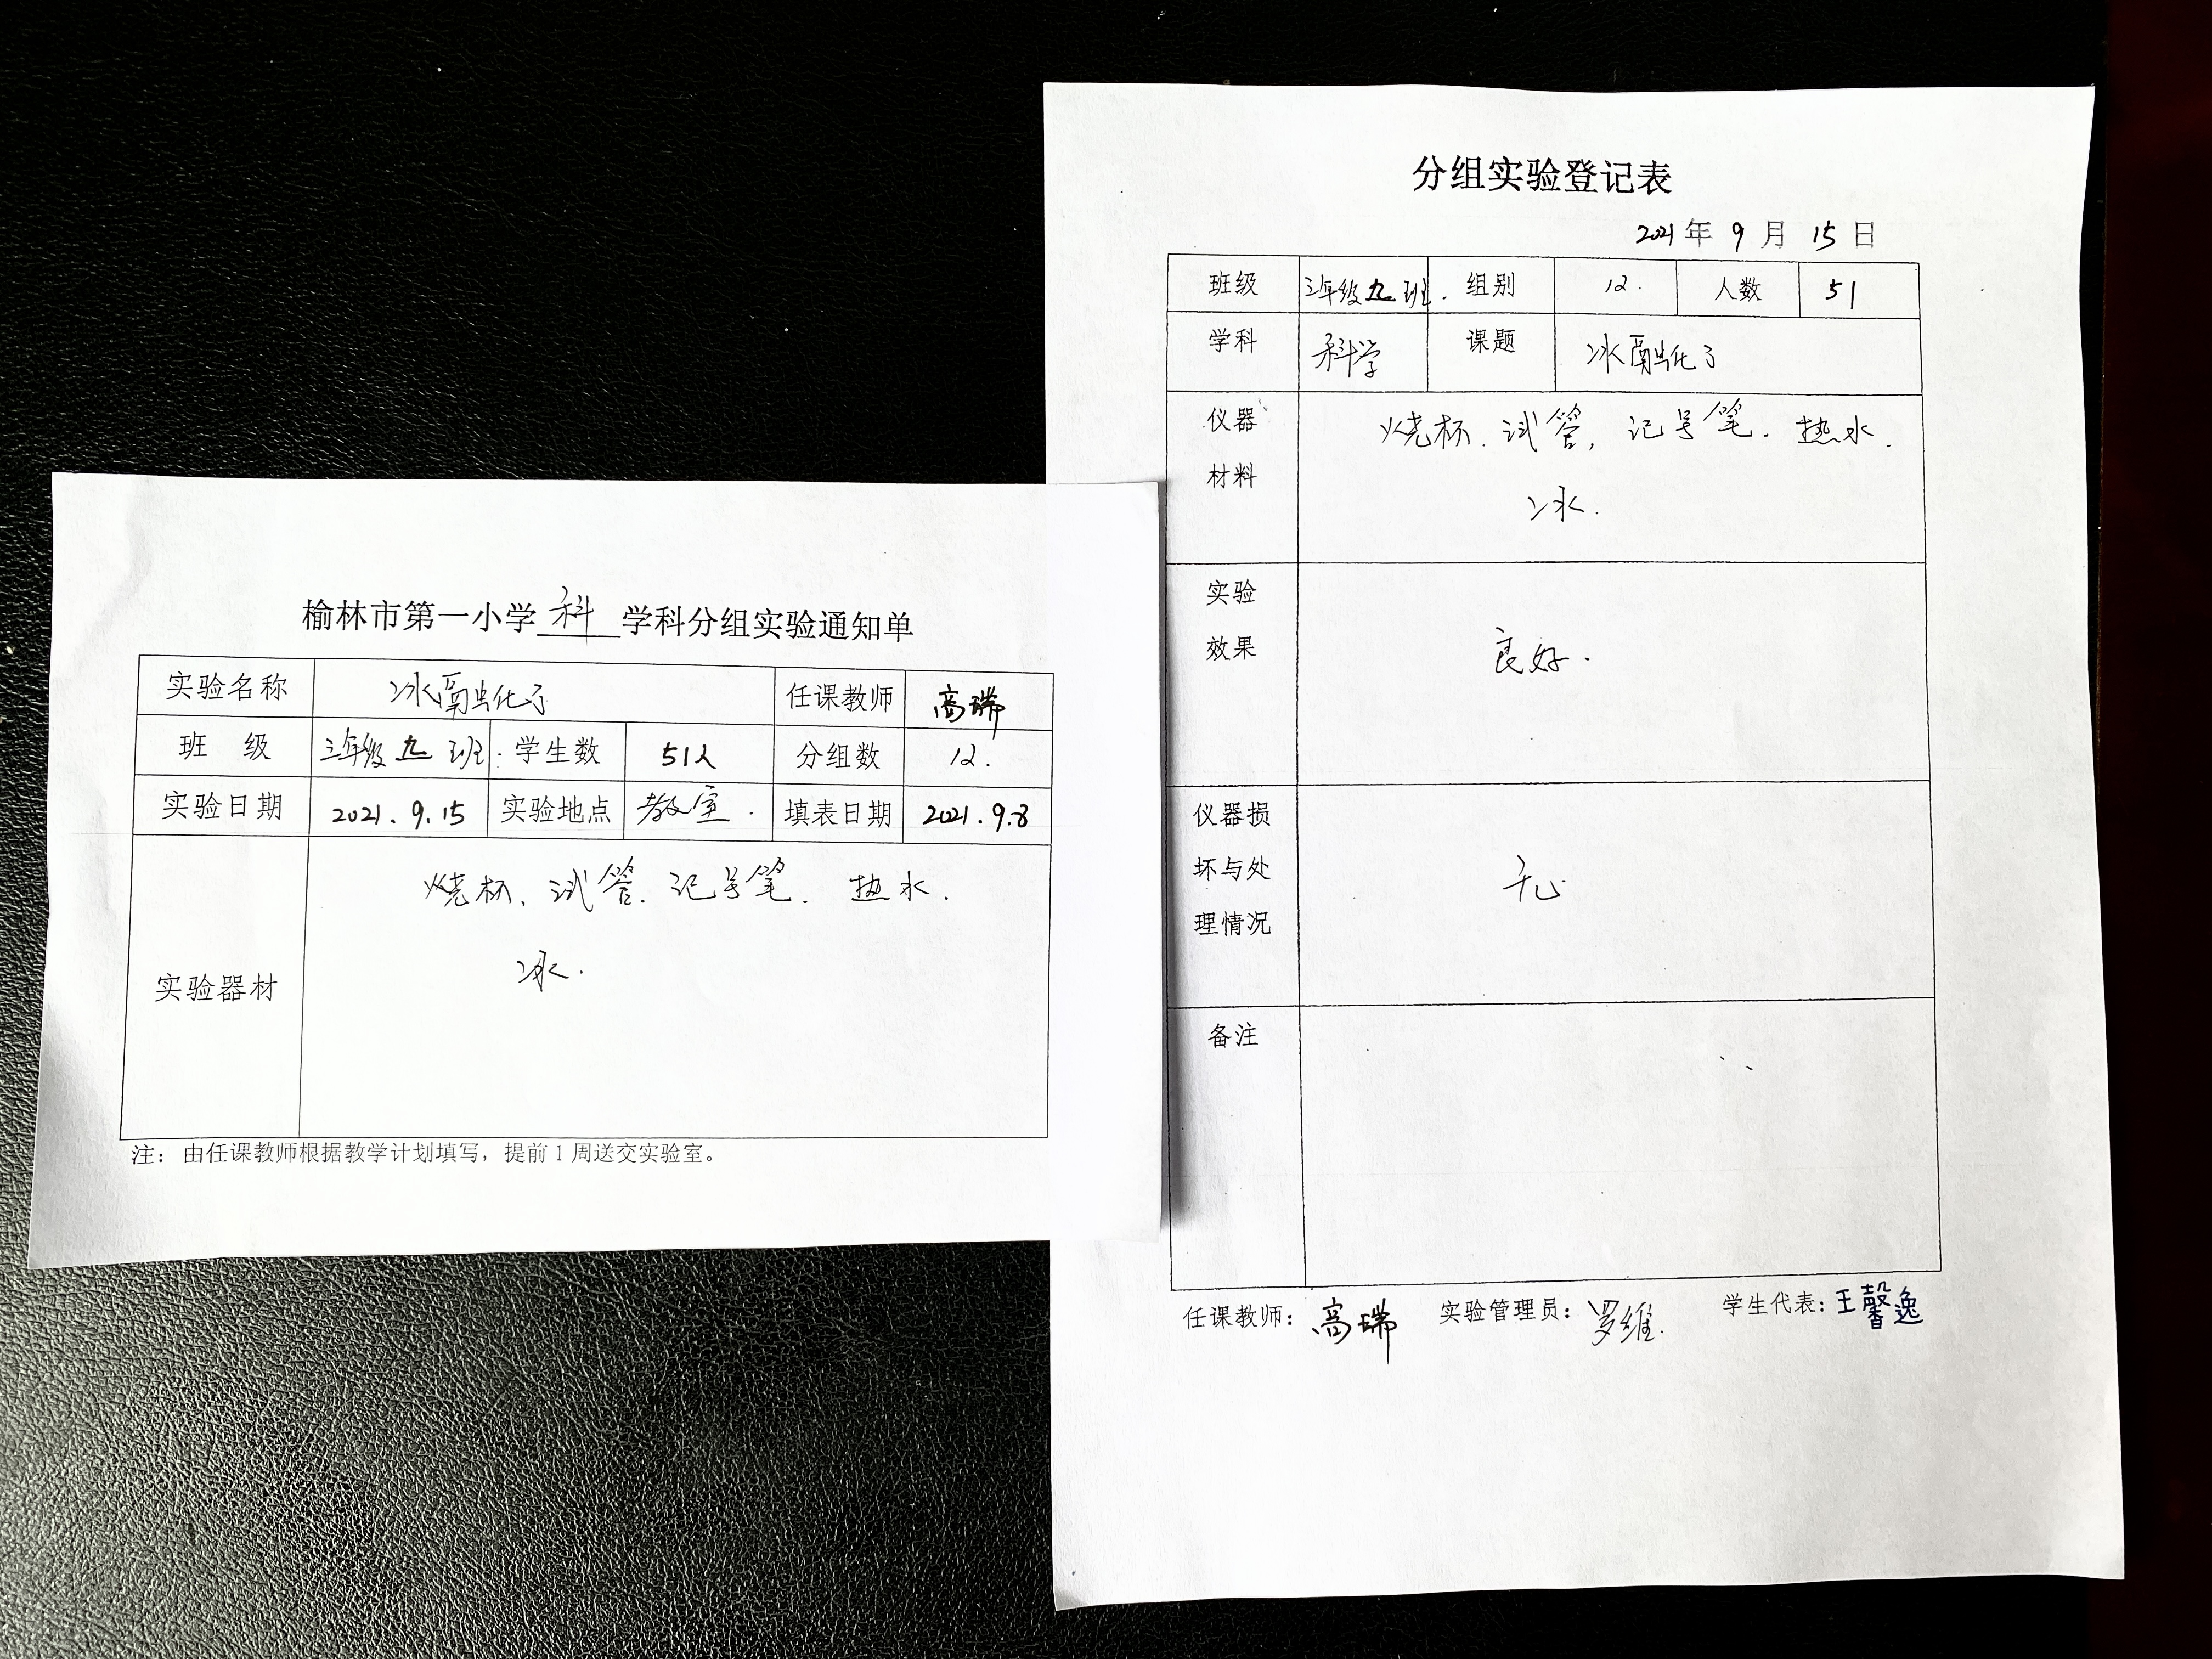 榆林市第一小学 科 学科分组实验通知单
实验名称 冰融化了 任课教师 高瑞
班 级 三年级九班. 学生数 51人 分组数 12.
实验日期 2021.9.15 实验地点 教室. 填表日期 2021.9.8
烧杯、试管、记号笔、热水、
实验器材
冰.
注：由任课教师根据教学计划填写，提前1周送交实验室。
分组实验登记表
2021年 9 月 15 日
班级 三年级九班. 组别 12. 人数 51
学科 科学 课题 冰融化了
仪器 烧杯、试管，记号笔、热水、
材料 冰.
实验
效果 良好.
仪器损
坏与处 无
理情况
备注
任课教师：高瑞 实验管理员：罗维. 学生代表：王馨逸